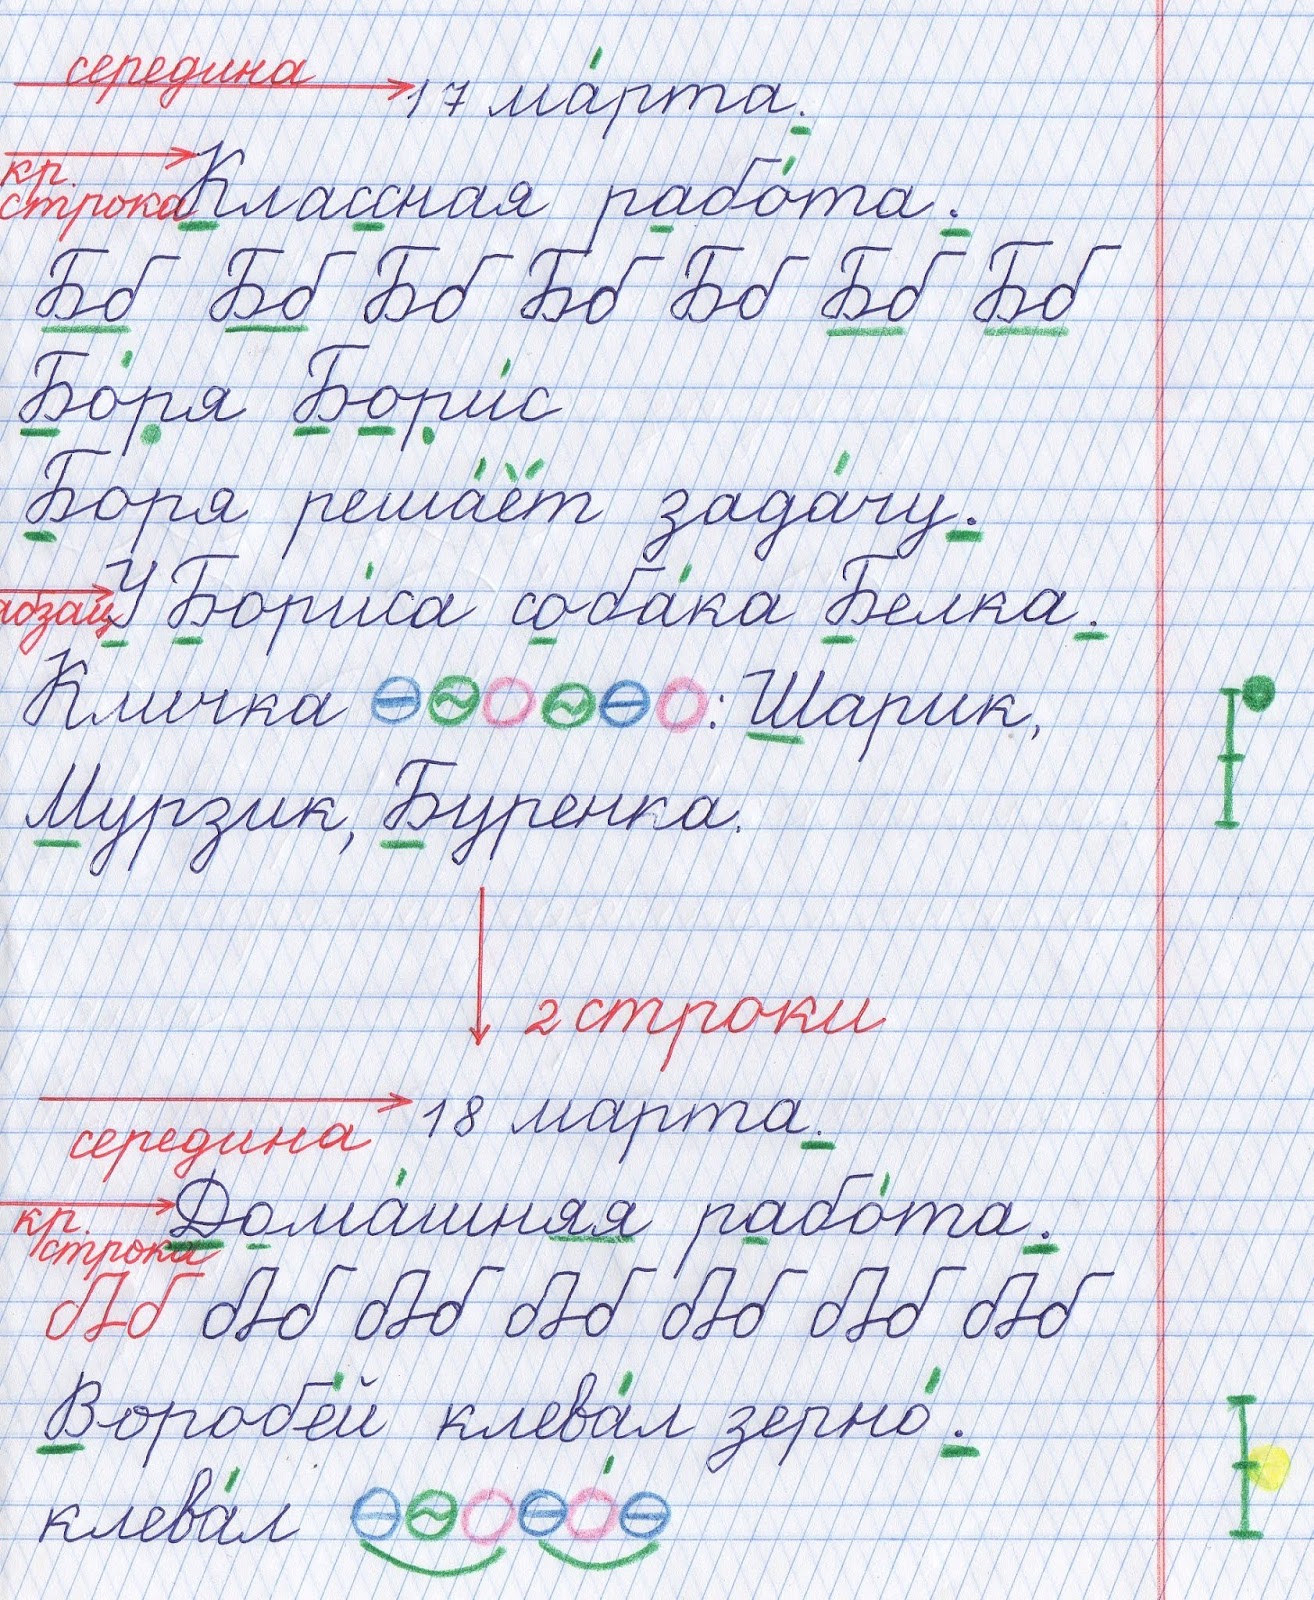 середина 17 ма́рта.
кр. строка Классная рабо́та.
Бб Бб Бб Бб Бб Бб Бб
Бо́ря Бори́с
Боря реша́ёт зада́чу.
абзац У Бори́са соба́ка Белка.
Кличка : Шарик,
Мурзик, Буренка.
2 строки
середина 18 марта.
кр. строка Дома́шняя рабо́та.
Лб Лб Лб Лб Лб Лб Лб
Воробе́й клева́л зерно́.
клева́л